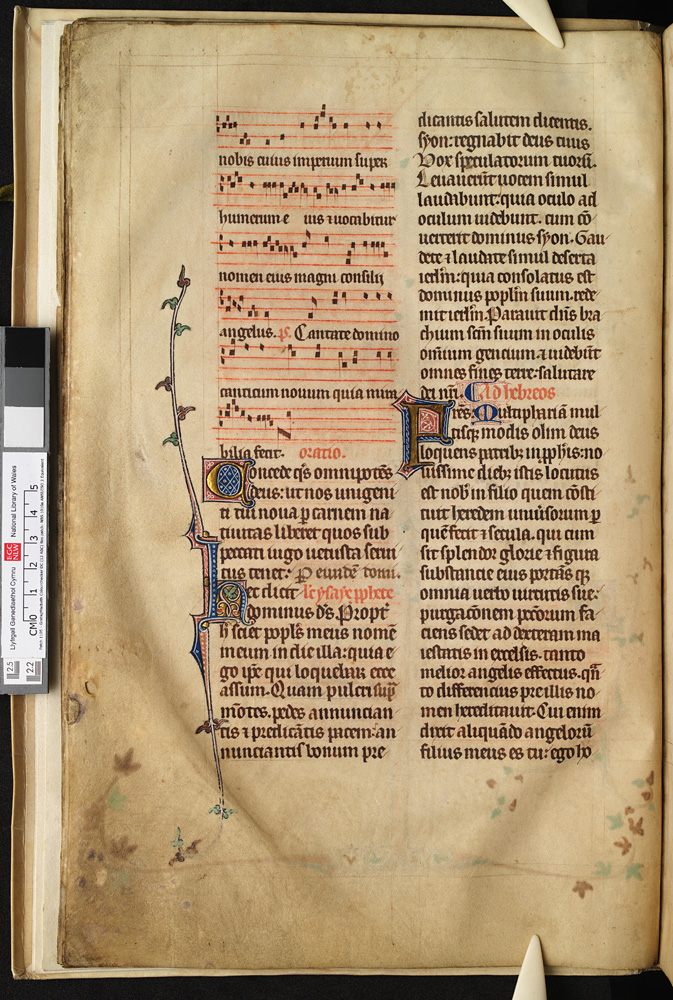 nobis cuius imperium super
humerum e ius ⁊ uocabitur
nomen eius magni consilij
angelus. ps. Cantate domino
canticum nouum quia mira
bilia fecit. oratio.
Concede q̄s omnipotēs
deus: ut nos unigeni
ti tui noua p carnem na
tiuitas liberet quos sub
peccati iugo uetusta serui
tus tenet. P eundē dom̄.
Hec dicit le ysaye pphete
dominus ds̄. Propt̄
h̄ sciet popl̄s meus nomē
meum in die illa: quia e
go ip̄e qui loquebar ecce
assum. Quam pulcri sup̄
mōtes. pedes annuncian
tis ⁊ predicātis pacem: an
nunciantis bonum pre
dicantis salutem dicentis.
syon: regnabit deus tuus
Vox speculatorum tuorū.
Leuauerūt uocem simul
laudabunt: quia oculo ad
oculum uidebūt. cum cō
uerterit dominus syon. Gau
dete ⁊ laudate simul deserta
ierl̄m: quia consolatus est
dominus popl̄m suum. rede
mit ierl̄m. Parauit dn̄s bra
chium scm̄ suum in oculis
omīum gencium. ⁊ uidebūt
omnes fines terre: salutare
dei nr̄i. Ad hebreos
Fr̄es. Multiphariā mul
tisq; modis olim deus
loquens patrib; in pph̄is: no
uissime dieb; istis locutus
est nob̄ in filio quem cōsti
tuit heredem uniūsorum p
quē fecit ⁊ secula. qui cum
sit splendor glorie ⁊ figura
substancie eius portās q;
omnia uerbo uirtutis sue:
purgacōnem pecc̄orum fa
ciens sedet ad dexteram ma
iestatis in excelsis. tanto
melior angelis effectus. qn̄
to differencius pre illis no
men hereditauit. Cui enim
dixit aliquādo angelorū
filius meus es tu: ego ho
Llyfrgell Genedlaethol Cymru
National Library of Wales
CM 0 1 2 3 4 5
2.5 2.2